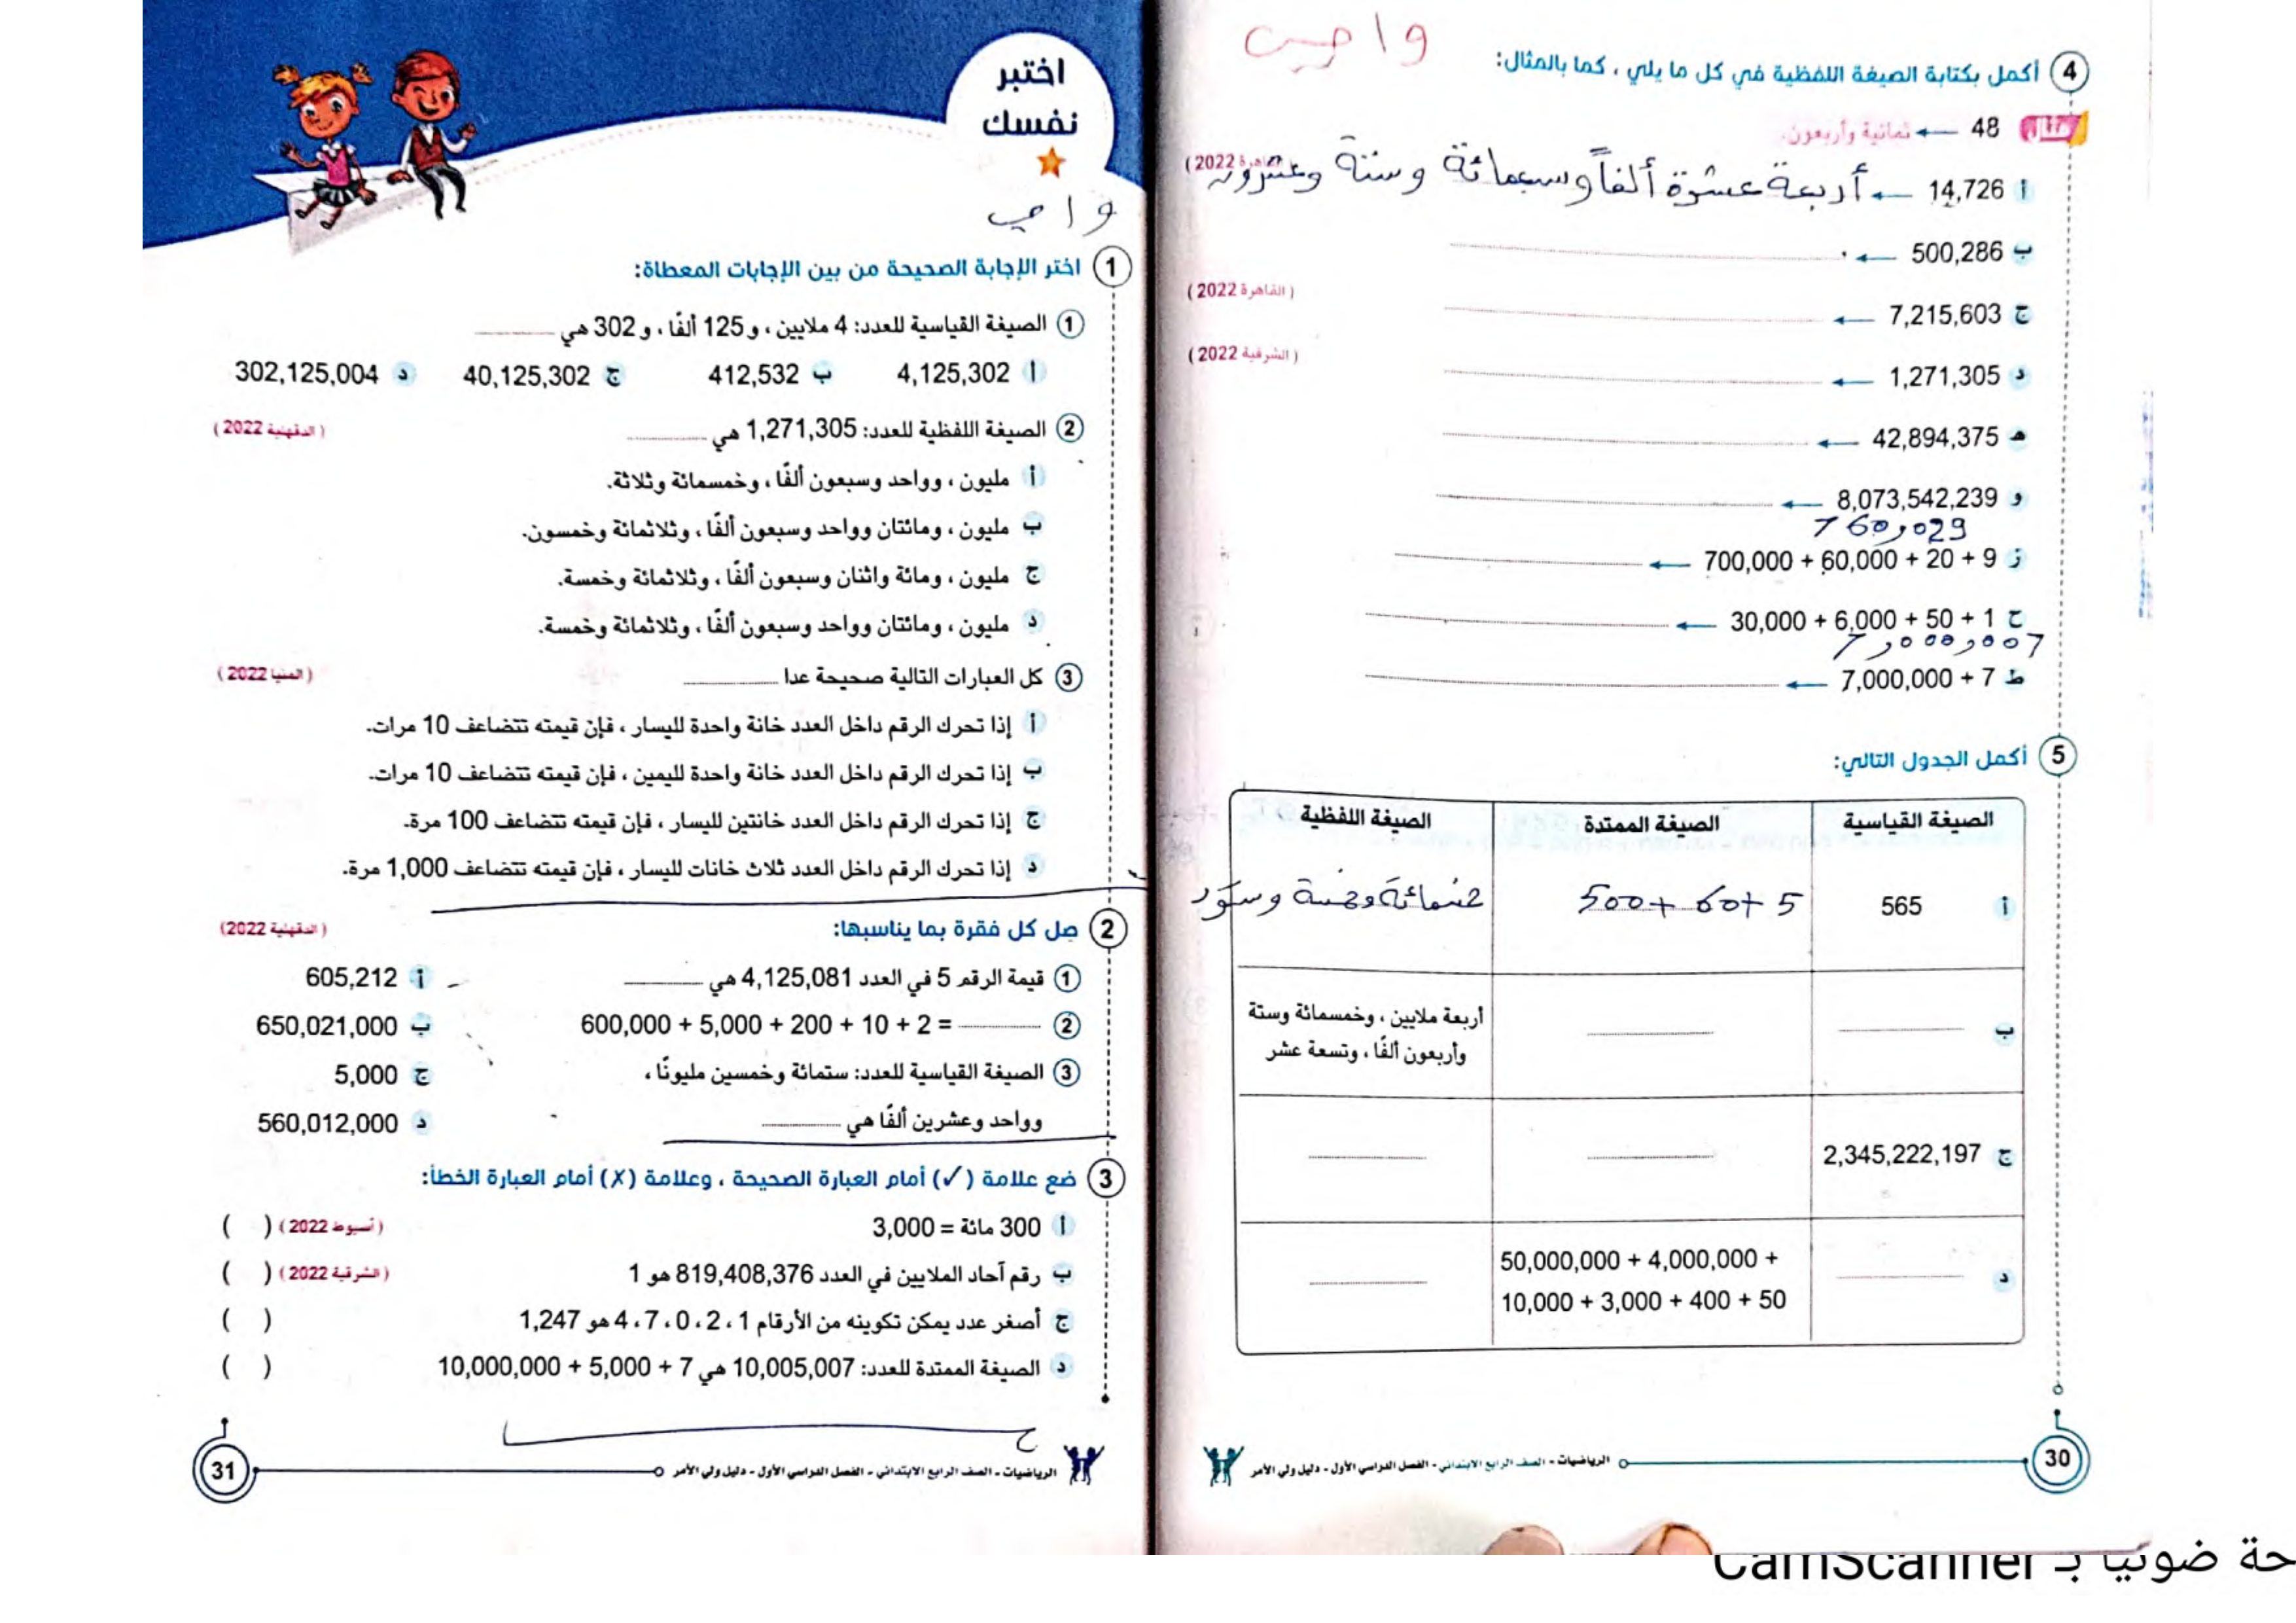 واجب
4 أكمل بكتابة الصيغة اللفظية في كل ما يلي ، كما بالمثال:
مثال 48 ← ثمانية وأربعون.
أ 14,726 ← أربعة عشرة ألفاً وسبعمائة وستة وعشرون (القاهرة 2022)
ب 500,286 ←
(القاهرة 2022)
ج 7,215,603 ←
(الشرقية 2022)
د 1,271,305 ←
هـ 42,894,375 ←
و 8,073,542,239 ←
760,029
ز 700,000 + 60,000 + 20 + 9 ←
ح 30,000 + 6,000 + 50 + 1 ←
7,000,007
ط 7,000,000 + 7 ←
5 أكمل الجدول التالي:
الصيغة القياسية الصيغة الممتدة الصيغة اللفظية
أ 565 500 + 60 + 5 خمسمائة وخمسة وستون
ب أربعة ملايين ، وخمسمائة وستة
وأربعون ألفًا ، وتسعة عشر
ج 2,345,222,197
د 50,000,000 + 4,000,000 +
10,000 + 3,000 + 400 + 50
30 الرياضيات - الصف الرابع الابتدائي - الفصل الدراسي الأول - دليل ولي الأمر
اختبر
نفسك
واجب
1 اختر الإجابة الصحيحة من بين الإجابات المعطاة:
1 الصيغة القياسية للعدد: 4 ملايين ، و 125 ألفًا ، و 302 هي
أ 4,125,302 ب 412,532 ج 40,125,302 د 302,125,004
2 الصيغة اللفظية للعدد: 1,271,305 هي (الدقهلية 2022)
أ مليون ، وواحد وسبعون ألفًا ، وخمسمائة وثلاثة.
ب مليون ، ومائتان وواحد وسبعون ألفًا ، وثلاثمائة وخمسون.
ج مليون ، ومائة واثنان وسبعون ألفًا ، وثلاثمائة وخمسة.
د مليون ، ومائتان وواحد وسبعون ألفًا ، وثلاثمائة وخمسة.
3 كل العبارات التالية صحيحة عدا (المنيا 2022)
أ إذا تحرك الرقم داخل العدد خانة واحدة لليسار ، فإن قيمته تتضاعف 10 مرات.
ب إذا تحرك الرقم داخل العدد خانة واحدة لليمين ، فإن قيمته تتضاعف 10 مرات.
ج إذا تحرك الرقم داخل العدد خانتين لليسار ، فإن قيمته تتضاعف 100 مرة.
د إذا تحرك الرقم داخل العدد ثلاث خانات لليسار ، فإن قيمته تتضاعف 1,000 مرة.
2 صل كل فقرة بما يناسبها: (الدقهلية 2022)
1 قيمة الرقم 5 في العدد 4,125,081 هي أ 605,212
2 600,000 + 5,000 + 200 + 10 + 2 = ب 650,021,000
3 الصيغة القياسية للعدد: ستمائة وخمسين مليونًا ، ج 5,000
وواحد وعشرين ألفًا هي د 560,012,000
3 ضع علامة (✓) أمام العبارة الصحيحة ، وعلامة (✗) أمام العبارة الخطأ:
أ 300 مائة = 3,000 (أسيوط 2022) ( )
ب رقم آحاد الملايين في العدد 819,408,376 هو 1 (الشرقية 2022) ( )
ج أصغر عدد يمكن تكوينه من الأرقام 1 ، 2 ، 0 ، 7 ، 4 هو 1,247 ( )
د الصيغة الممتدة للعدد: 10,005,007 هي 10,000,000 + 5,000 + 7 ( )
الرياضيات - الصف الرابع الابتدائي - الفصل الدراسي الأول - دليل ولي الأمر 31
ضوئيا بـ CamScanner